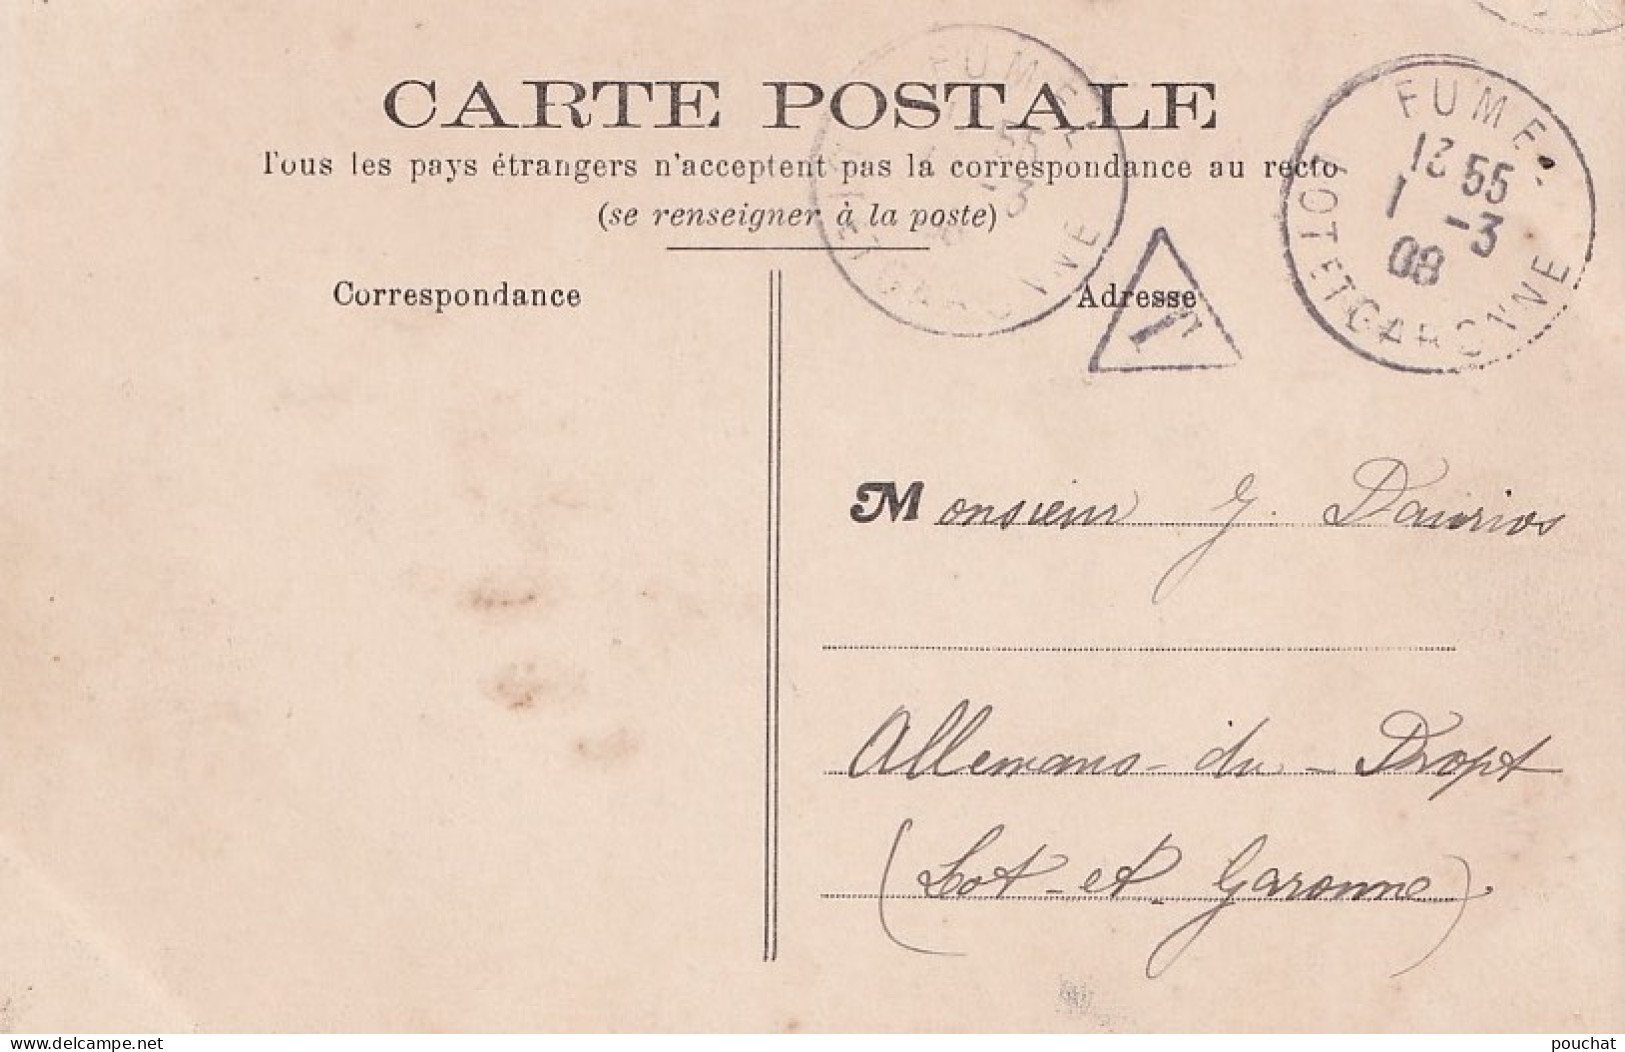 CARTE POSTALE
Tous les pays étrangers n'acceptent pas la correspondance au recto
(se renseigner à la poste)
Correspondance
Adresse
FUMEL
13 55
1 -3
08
LOT ET GARONNE
FUMEL
55
-3
ET GARONNE
T
Monsieur J. Daurios
Allemans-du-Dropt
(Lot-et-Garonne)
www.delcampe.net
pouchat